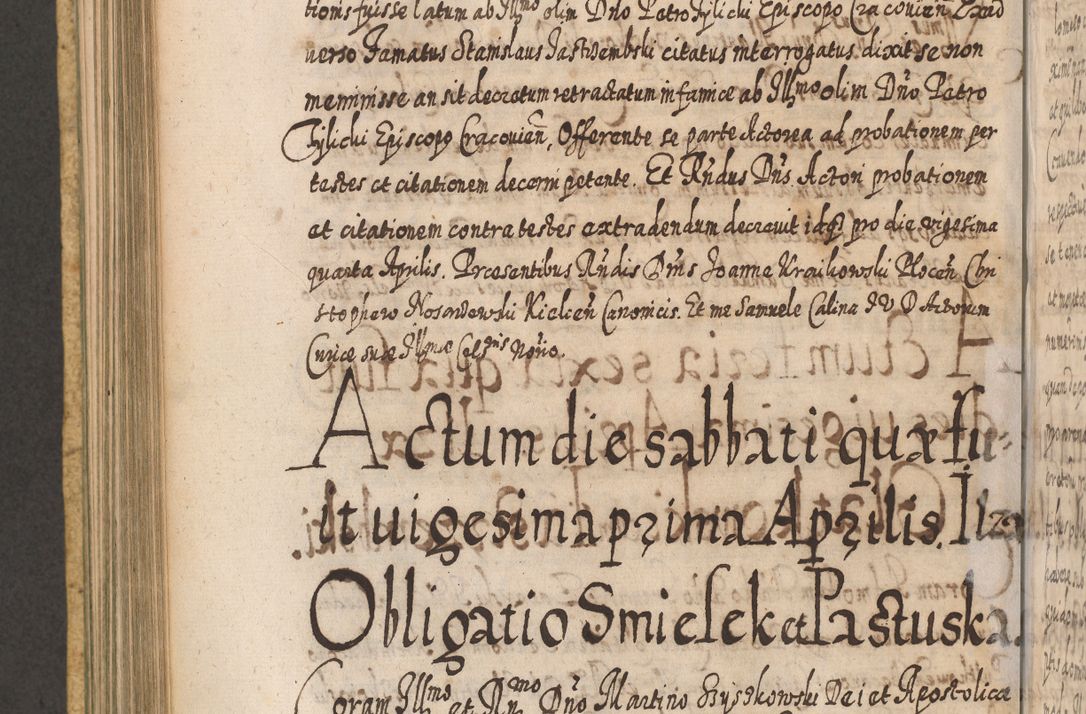 tionis fuisse latum ab Illmo olim Dño Petro Tylicki Episcopo Cracovieñ
verso Famatus Stanislaus Jastrzembski citatus interrogatus dixit se non
meminisse an sit decretum retractatum infamice ab Illmo olim Dño Petro
Tylicki Episcopo Cracovieñ, Offerente se parte Actorea ad probationem per
testes et citationem decerni petente. Et Rñdus Dñs Actori probationem
et citationem contra testes extradendum decrevit idq pro die vigesima
quarta Aprilis. Præsentibus Rñdis Dñis Joanne Kraikowski Ploceñ Chri
stophero Nosadowski Kielceñ Canonicis. Et me Samuele Calina I V D Actorum
Curiæ suæ Illmæ Celsnis Notrio.
Actum die sabbati quæ fu-
it uigesima prima Aprilis. Ilza
Obligatio Smielek et Pastuska.
Coram Illmo et Rmo Dño Martino Szyszkowski Dei et Apostolicæ